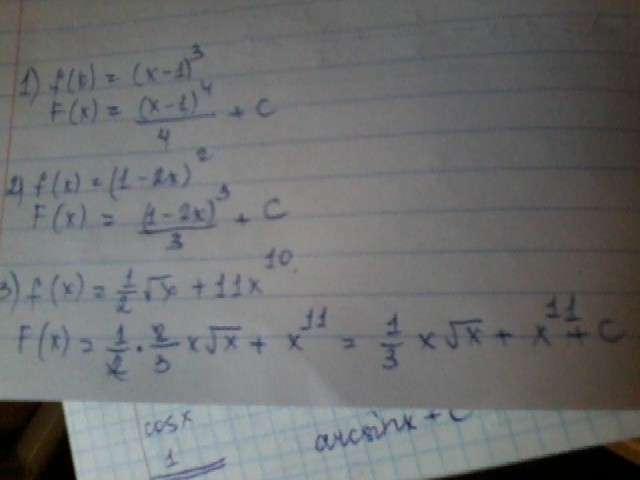 1) f(x) = (x-1)^3
F(x) = (x-1)^4/4 + C
2) f(x) = (1-2x)^2
F(x) = (1-2x)^3/3 + C
3) f(x) = 1/2 √x + 11x^10.
F(x) = 1/2 · 2/3 x√x + x^11 = 1/3 x√x + x^11 + C
cosx
1
arcsinx + C